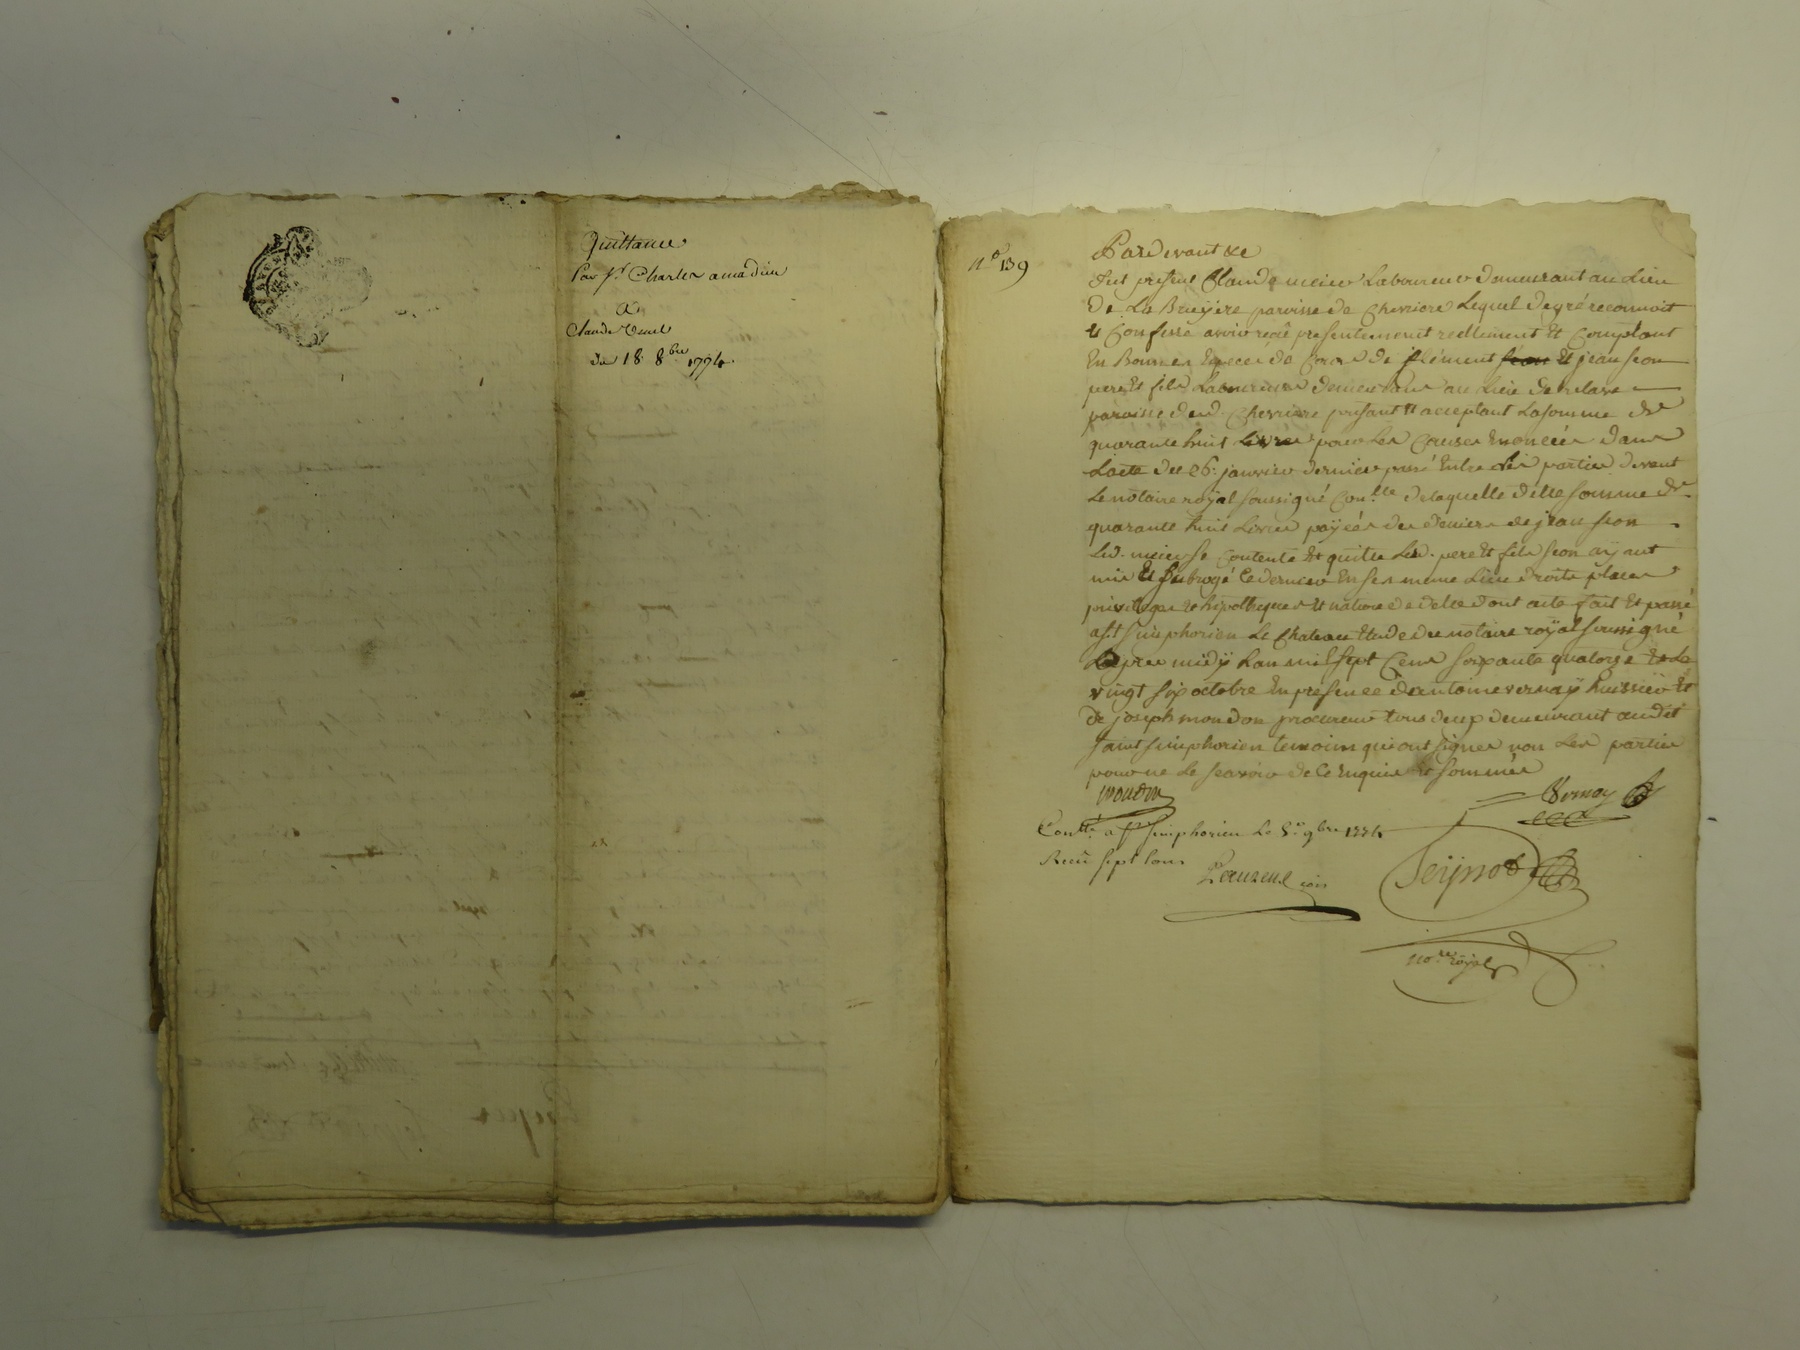 Quittance
Par Sr Charles amadieu
a
Claude
du 18 8bre 1774.
no 139
Pardevant &c
fut present Claude meier Laboureur demeurant au Lieu
de La Bruÿere paroisse de Cherriere Lequel de gré reconnoit
et Confesse avoir recû presentement reellement et Comptant
En Bonnes Especes de Cours de Clement et jean seon
pere et fils Laboureurs demeurant au Lieu de
paroisse dud. Cherriere presant et acceptant La somme de
quarante huit Livres pour Les Causes Enoncées dans
L'acte du 26e janvier dernier passé Entre Les parties devant
Le notaire roÿal soussigné Con.lle de laquelle ditte somme de
quarante huit Livres paÿées des deniers de jean seon
Led. meier se Contente et quitte Led. pere et fils seon aÿant
mis et subrogé Ce dernier En ses meme Lieu droits places
privileges et hipotheques et nature de dont acte fait et passé
a St simphorien Le Chateau Etude du notaire roÿal soussigné
apres midÿ L'an mil sept Cens soixante quatorze et Le
vingt six octobre En presence d'antoine vernaÿ huissier et
de joseph mondon procureur tous deux demeurant audit
saint simphorien temoins qui ont signés non Les parties
pour ne Le scavoir de Ce Enquis et sommés
mondon
Vernay
Conllé a St simphorien Le 5e 9bre 1774
Recû sept sous
no.re royal